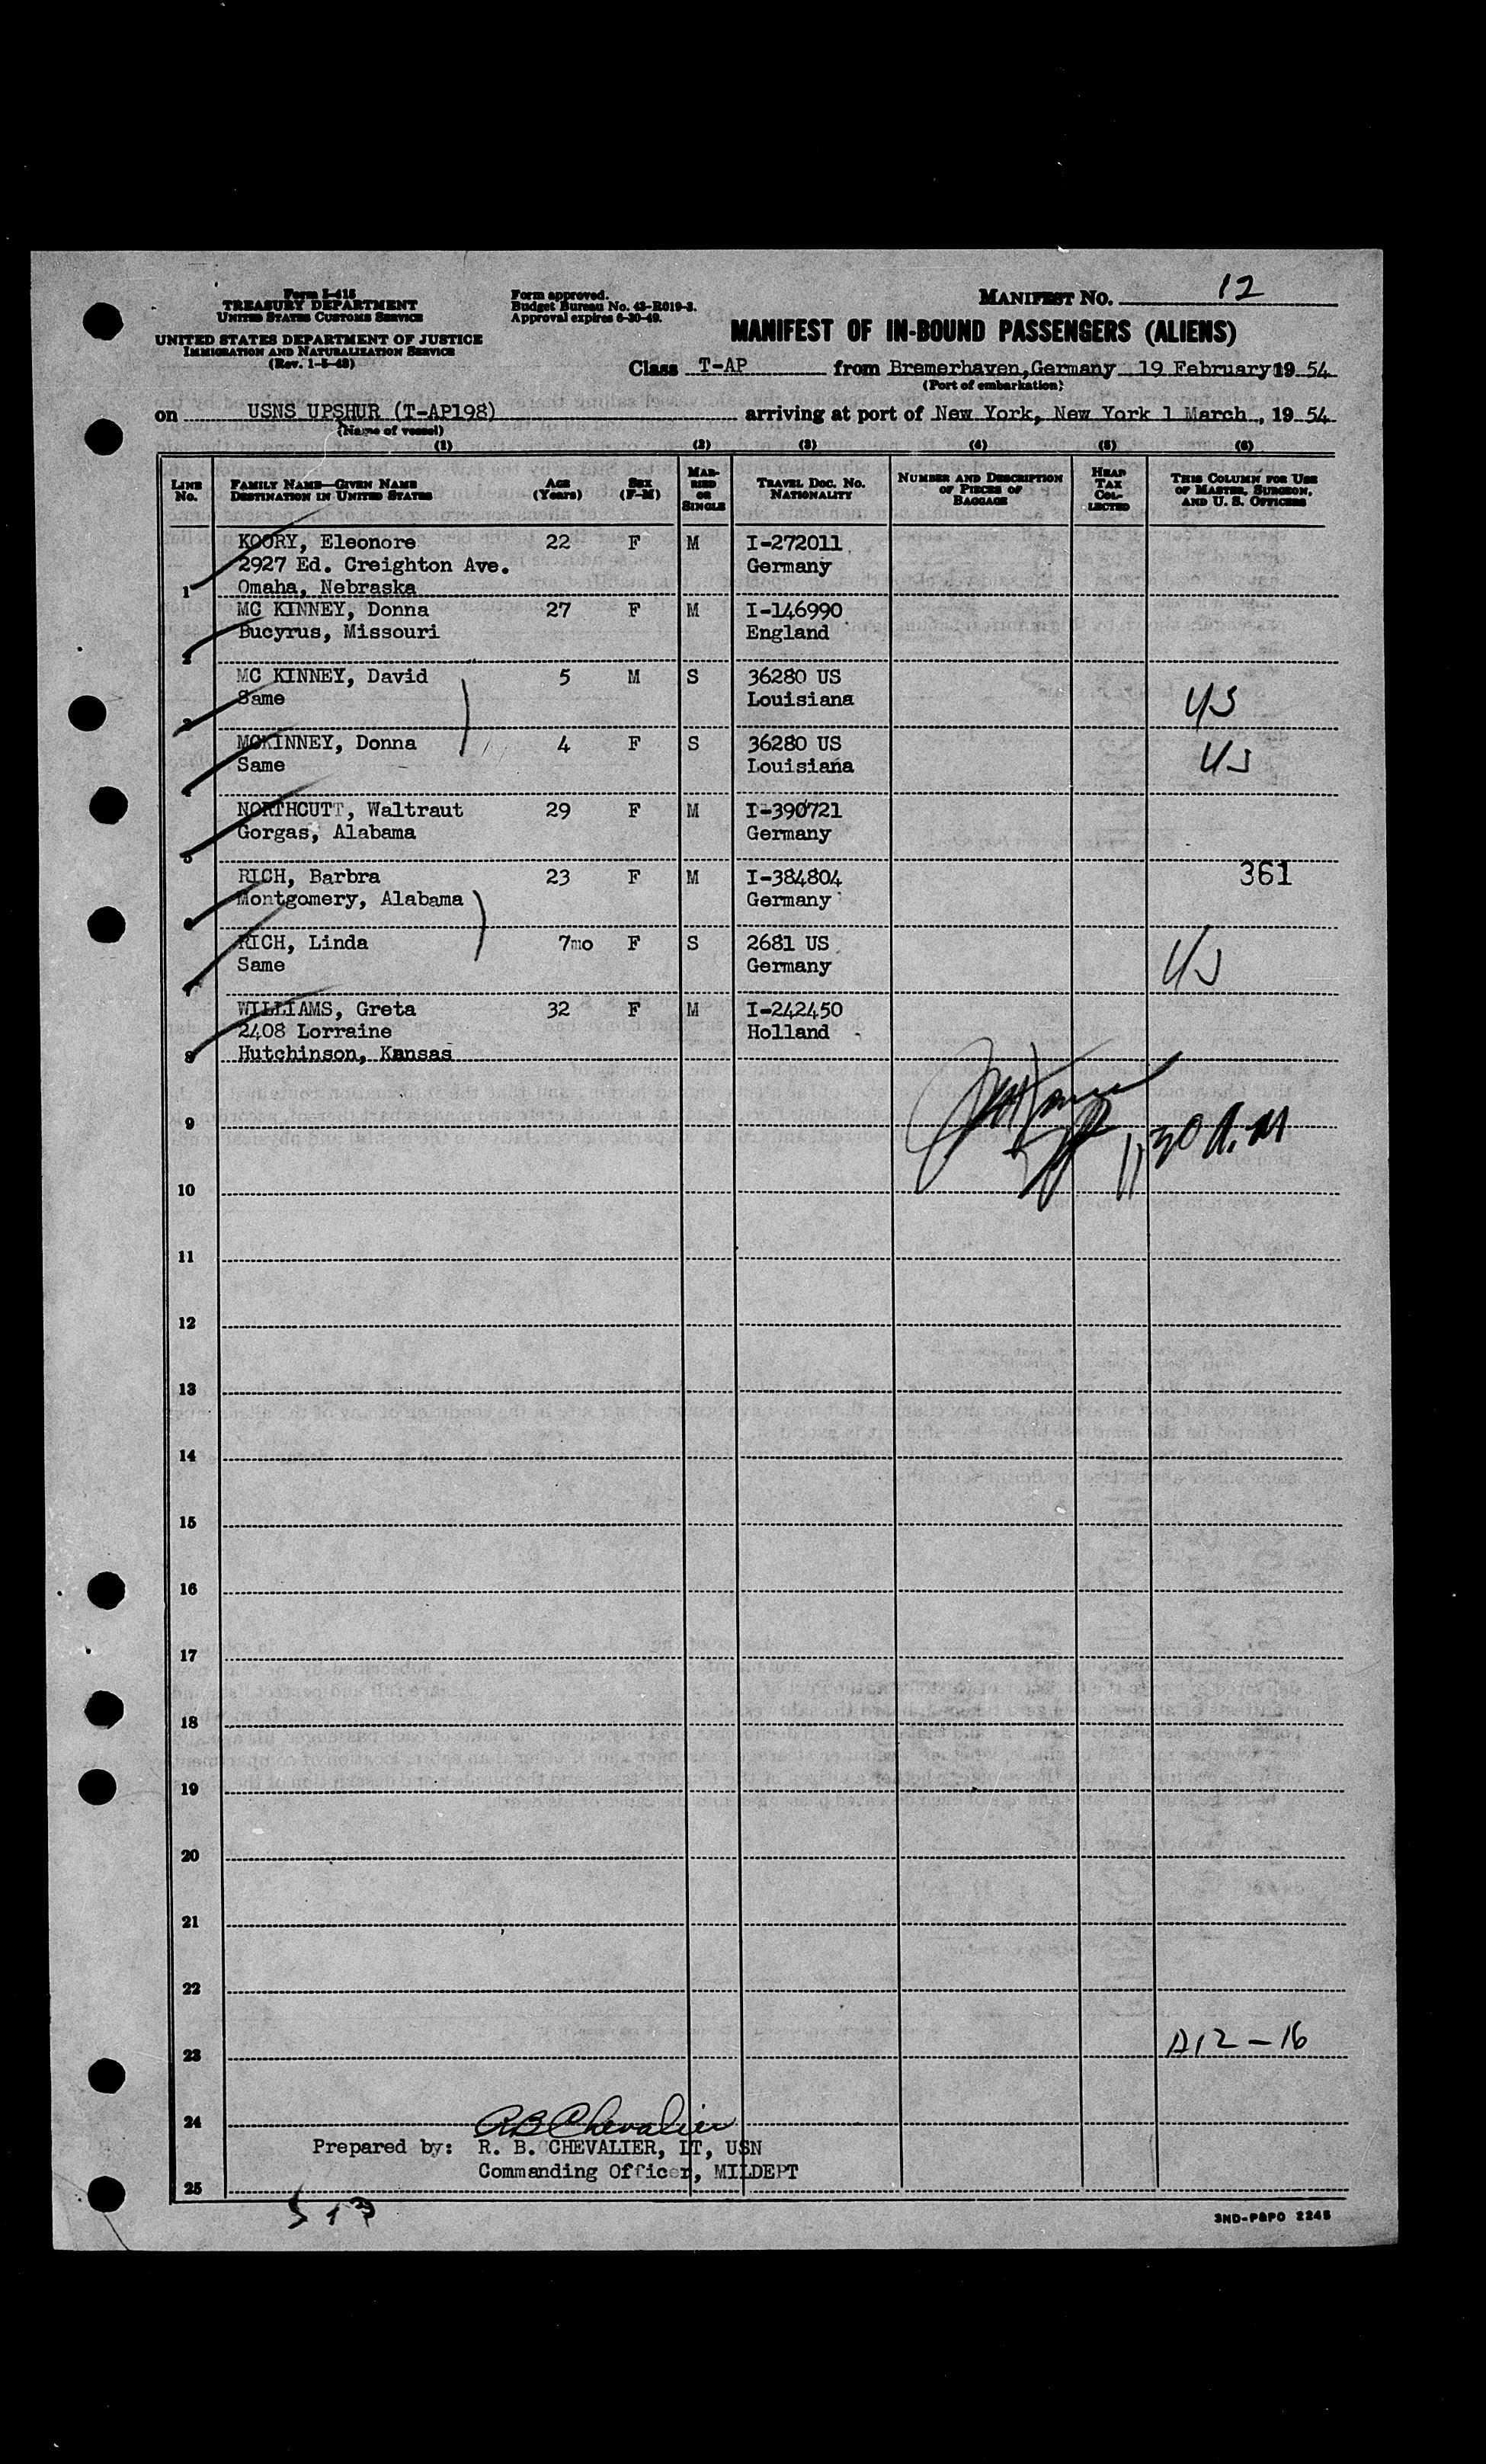 Form I-415
TREASURY DEPARTMENT
UNITED STATES CUSTOMS SERVICE
UNITED STATES DEPARTMENT OF JUSTICE
IMMIGRATION AND NATURALIZATION SERVICE
(Rev. 1-5-48)
Form approved.
Budget Bureau No. 43-R019-3.
Approval expires 6-30-49.
MANIFEST NO. 12
MANIFEST OF IN-BOUND PASSENGERS (ALIENS)
Class T-AP from Bremerhaven,Germany 19 February 19 54
(Port of embarkation)
on USNS UPSHUR (T-AP198) arriving at port of New York, New York 1 March , 19 54
(Name of vessel)
(1) (2) (3) (4) (5) (6)
LINE No. FAMILY NAME—GIVEN NAME DESTINATION IN UNITED STATES AGE (Years) SEX (F-M) MARRIED OR SINGLE TRAVEL DOC. NO. NATIONALITY NUMBER AND DESCRIPTION OF PIECES OF BAGGAGE HEAD TAX COLLECTED THIS COLUMN FOR USE OF MASTER, SURGEON, AND U. S. OFFICERS
KOORY, Eleonore 22 F M I-272011
2927 Ed. Creighton Ave. Germany
1 Omaha, Nebraska
MC KINNEY, Donna 27 F M I-146990
Bucyrus, Missouri England
2
MC KINNEY, David 5 M S 36280 US
Same Louisiana US
3
MCKINNEY, Donna 4 F S 36280 US
Same Louisiana US
4
NORTHCUTT, Waltraut 29 F M I-390721
Gorgas, Alabama Germany
5
RICH, Barbra 23 F M I-384804 361
Montgomery, Alabama Germany
6
RICH, Linda 7mo F S 2681 US
Same Germany US
7
WILLIAMS, Greta 32 F M I-242450
2408 Lorraine Holland
8 Hutchinson, Kansas
9 1130 A.M
10
11
12
13
14
15
16
17
18
19
20
21
22
23 A12-16
24 RB Chevalier
Prepared by: R. B. CHEVALIER, LT, USN
Commanding Officer, MILDEPT
25
3ND-P&PO 2245